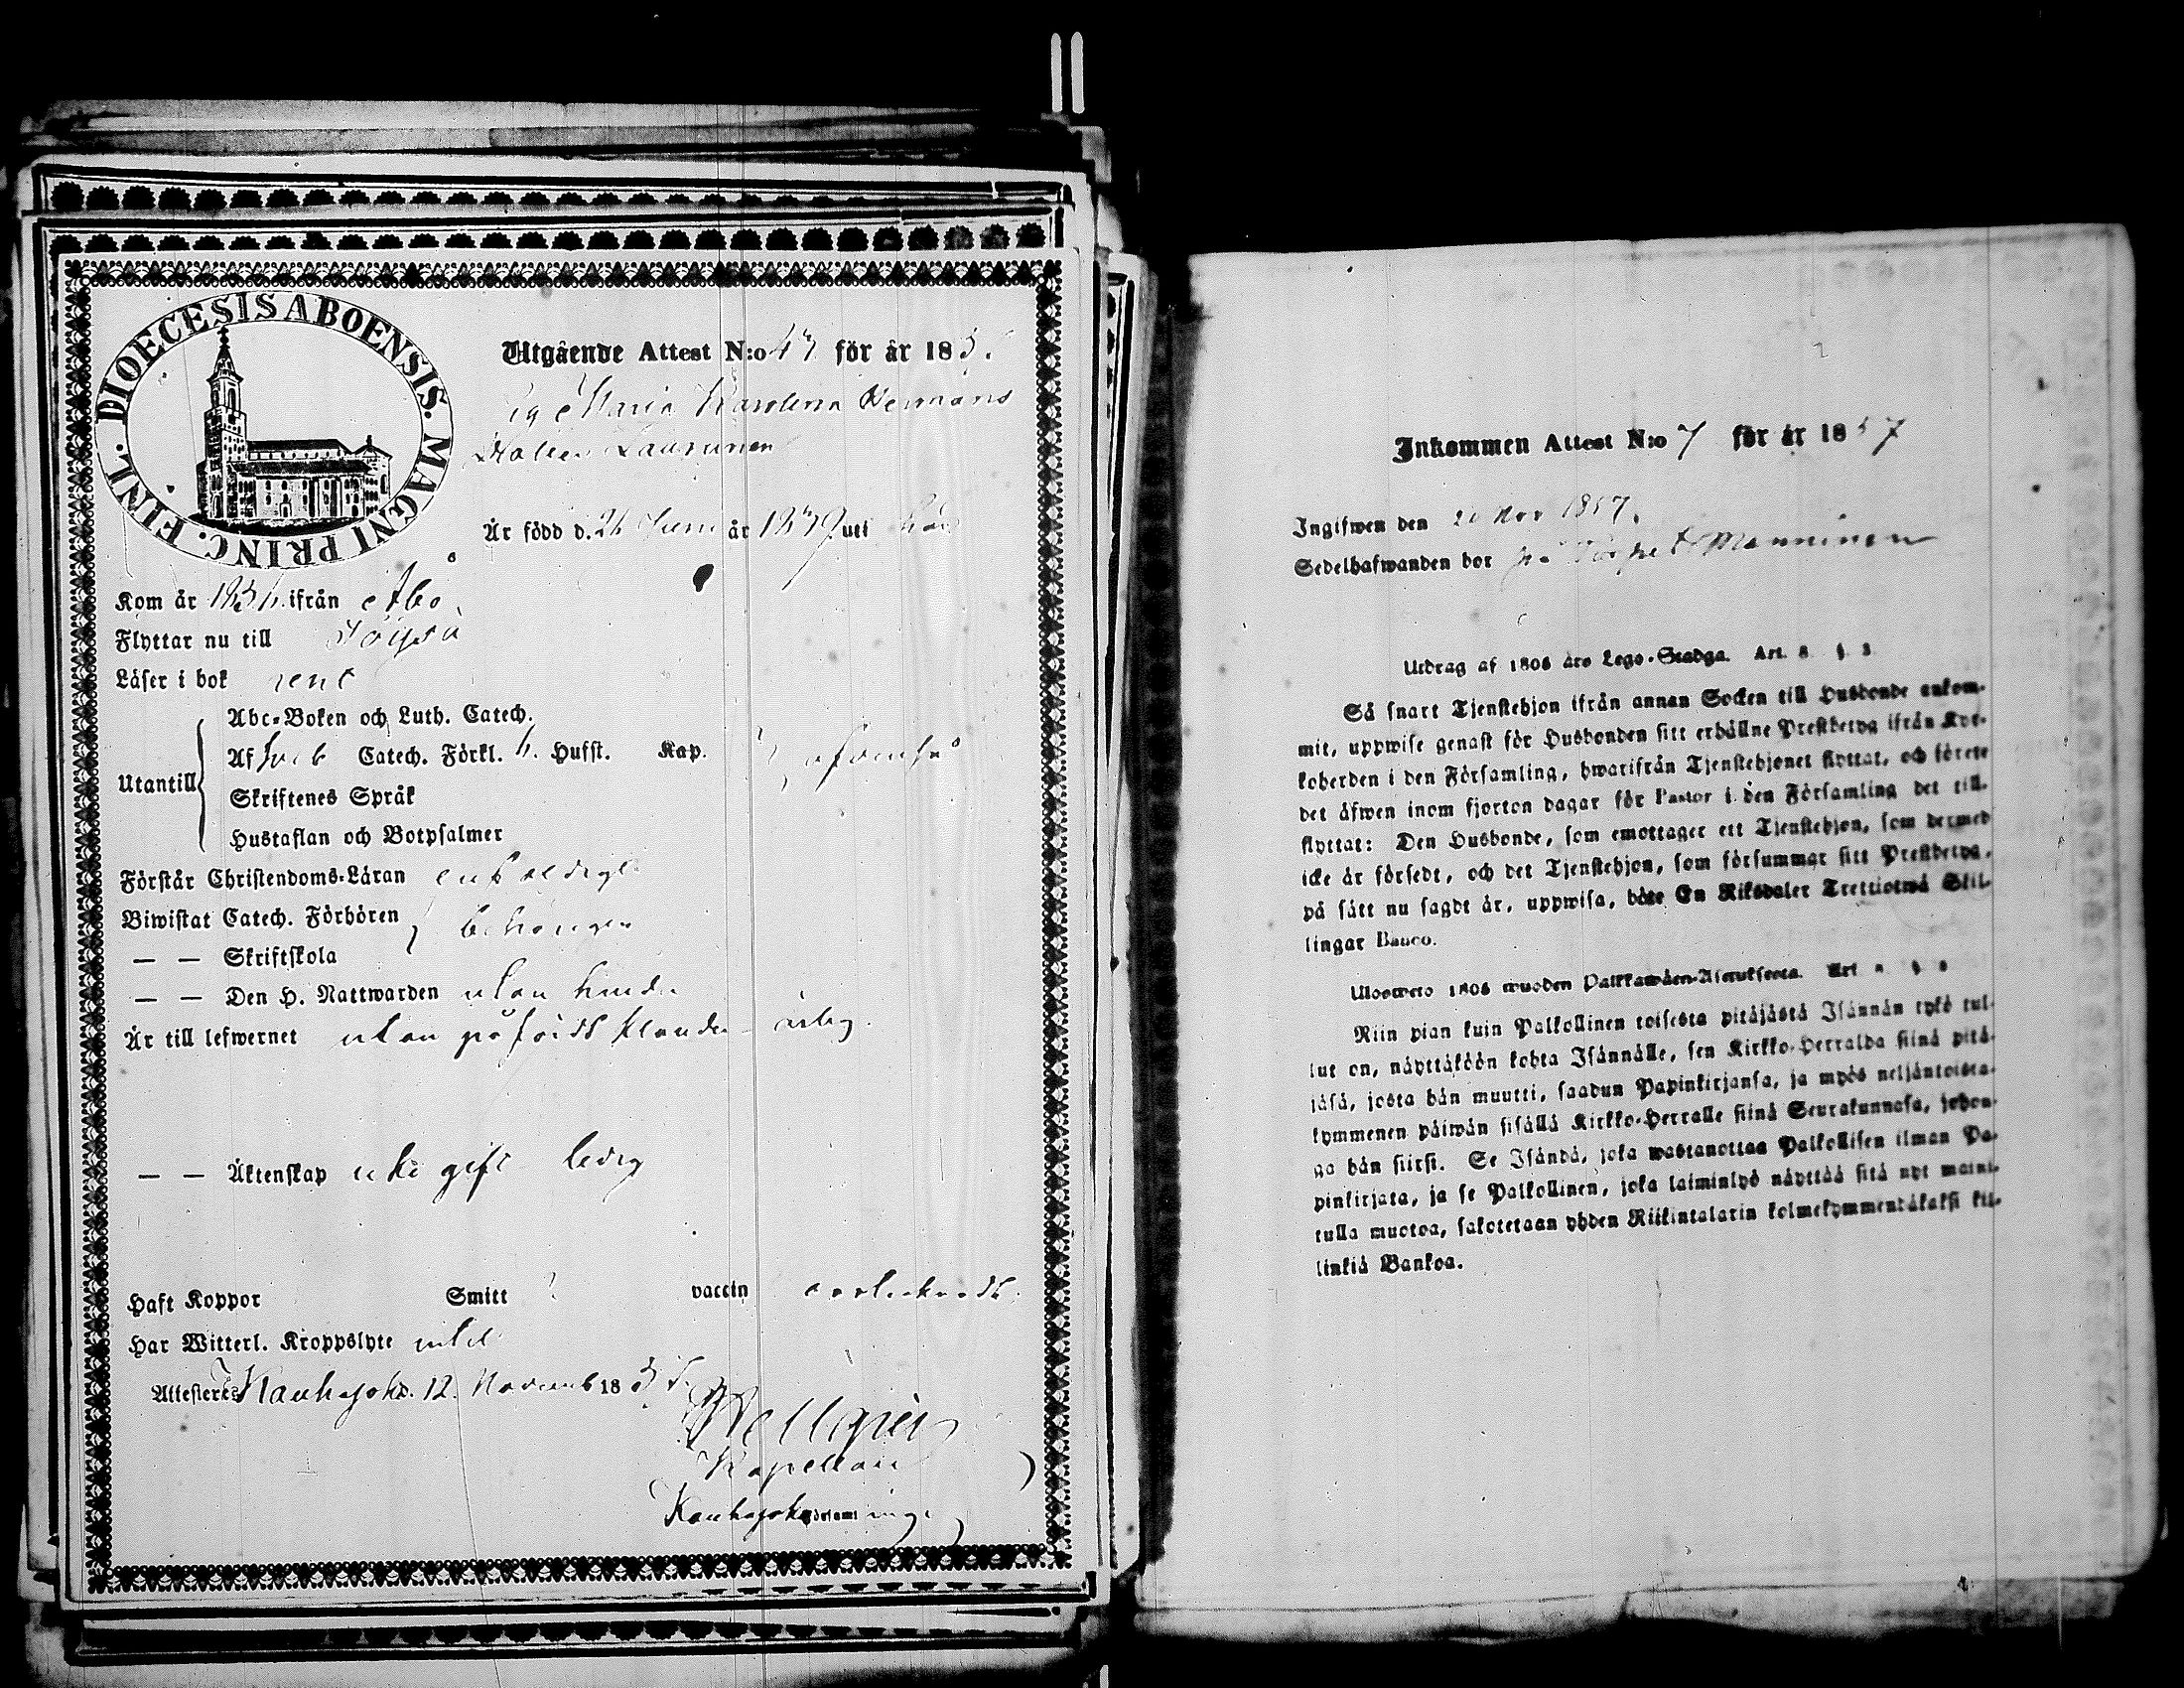 DIOECESIS ABOENSIS. MAGNI PRINC. FINL.
Utgående Attest N:o 47 för år 185
Maria Karolina Hermans
Laurunen
Är född d. 24 Juni år 1839 uti
Kom år 1856 ifrån Åbo
Flyttar nu till Töysä
Läser i bok rent
Abc-Boken och Luth. Catech.
Af Catech. Förkl. Husst. Kap.
Utantill
Skriftenes Språk
Hustaflan och Botpsalmer
Förstår Christendoms-Läran enfaldigt
Biwistat Catech. Förhören
— — Skriftskola
behörigen
— — Den H. Nattwarden utan hinder
Är till lefwernet utan påfördt klander ärlig.
— — Äktenskap icke gift ledig
Haft Koppor Smitt vaccin
Har Witterl. Kroppslyte intet
Attesteres Kauhajoki d. 12. Novemb 185
Wellgrén
Kapellan
Kauhajoki församling
Inkommen Attest N:o 7 för år 1857
Ingifwen den 20 Nov 1857.
Sedelhafwanden bor på Manninen
Utdrag af 1805 års Lego-Stadga. Art. 8 § 3
Så snart Tjenstehjon ifrån annan Socken till Husbonde ankom-
mit, uppwise genast för Husbonden sitt erhållne Prestbetyg ifrån Kyr-
koherden i den Församling, hwarifrån Tjenstehjonet flyttat, och förete
det äfwen inom fjorton dagar för Pastor i den Församling det till-
flyttat: Den Husbonde, som emottager ett Tjenstehjon, som dermed
icke är försedt, och det Tjenstehjon, som försummar sitt Prestbetyg,
på sätt nu sagdt är, uppwisa, böte En Riksdaler Trettiotwå Skil-
lingar Banco.
Uloswero 1805 wuoden Palkkawäen-Asetuksesta. Art
Niin pian kuin Palkollinen toisesta pitäjästä Isännän tykö tul-
lut on, näyttäköön kohta Isännälle, sen Kirkko-Herralda siinä pitä-
jäsä, josta hän muutti, saadun Papinkirjansa, ja myös neljäntoista-
kymmenen päiwän sisällä Kirkko-Herralle siinä Seurakunnasa, johon-
ga hän siirsi. Se Isändä, joka wastanottaa Palkollisen ilman Pa-
pinkirjata, ja se Palkollinen, joka laiminlyö näyttää sitä nyt maini-
tulla muotoa, sakotetaan yhden Riikintalarin kolmekymmendäkaksi kil-
linkiä Bankoa.